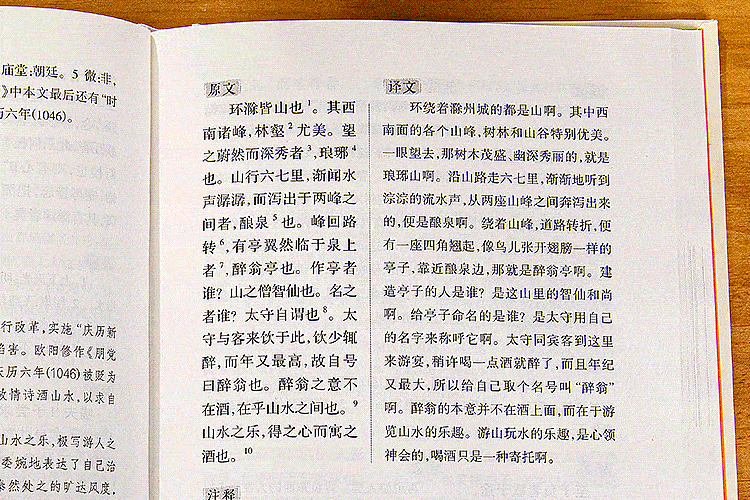 庙堂:朝廷。5 微:非,
》中本文最后还有“时
历六年(1046)。
行改革,实施“庆历新
陷害。欧阳修作《朋党
庆历六年(1046)被贬为
放情诗酒山水,以求自
山水之乐,极写游人之
委婉地表达了自己治
泰然处之的旷达风度,
原文
环滁皆山也1。其西
南诸峰,林壑2尤美。望
之蔚然而深秀者3,琅琊4
也。山行六七里,渐闻水
声潺潺,而泻出于两峰之
间者,酿泉5也。峰回路
转6,有亭翼然临于泉上
者7,醉翁亭也。作亭者
谁?山之僧智仙也。名之
者谁?太守自谓也8。太
守与客来饮于此,饮少辄
醉,而年又最高,故自号
曰醉翁也。醉翁之意不
在酒,在乎山水之间也。9
山水之乐,得之心而寓之
酒也。10
注释
译文
环绕着滁州城的都是山啊。其中西
南面的各个山峰,树林和山谷特别优美。
一眼望去,那树木茂盛、幽深秀丽的,就是
琅琊山啊。沿山路走六七里,渐渐地听到
淙淙的流水声,从两座山峰之间奔泻出来
的,便是酿泉啊。绕着山峰,道路转折,便
有一座四角翘起,像鸟儿张开翅膀一样的
亭子,靠近酿泉边,那就是醉翁亭啊。建
造亭子的人是谁?是这山里的智仙和尚
啊。给亭子命名的是谁?是太守用自己
的名字来称呼它啊。太守同宾客到这里
来游宴,稍许喝一点酒就醉了,而且年纪
又最大,所以给自己取个名号叫“醉翁”
啊。醉翁的本意并不在酒上面,而在于游
览山水的乐趣。游山玩水的乐趣,是心领
神会的,喝酒只是一种寄托啊。